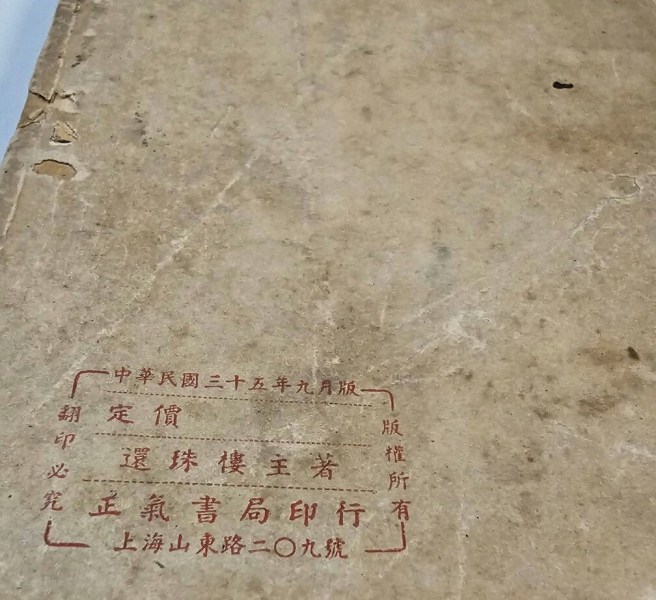 中華民國三十五年九月版
定價
還珠樓主著
正氣書局印行
上海山東路二〇九號
版權所有
翻印必究